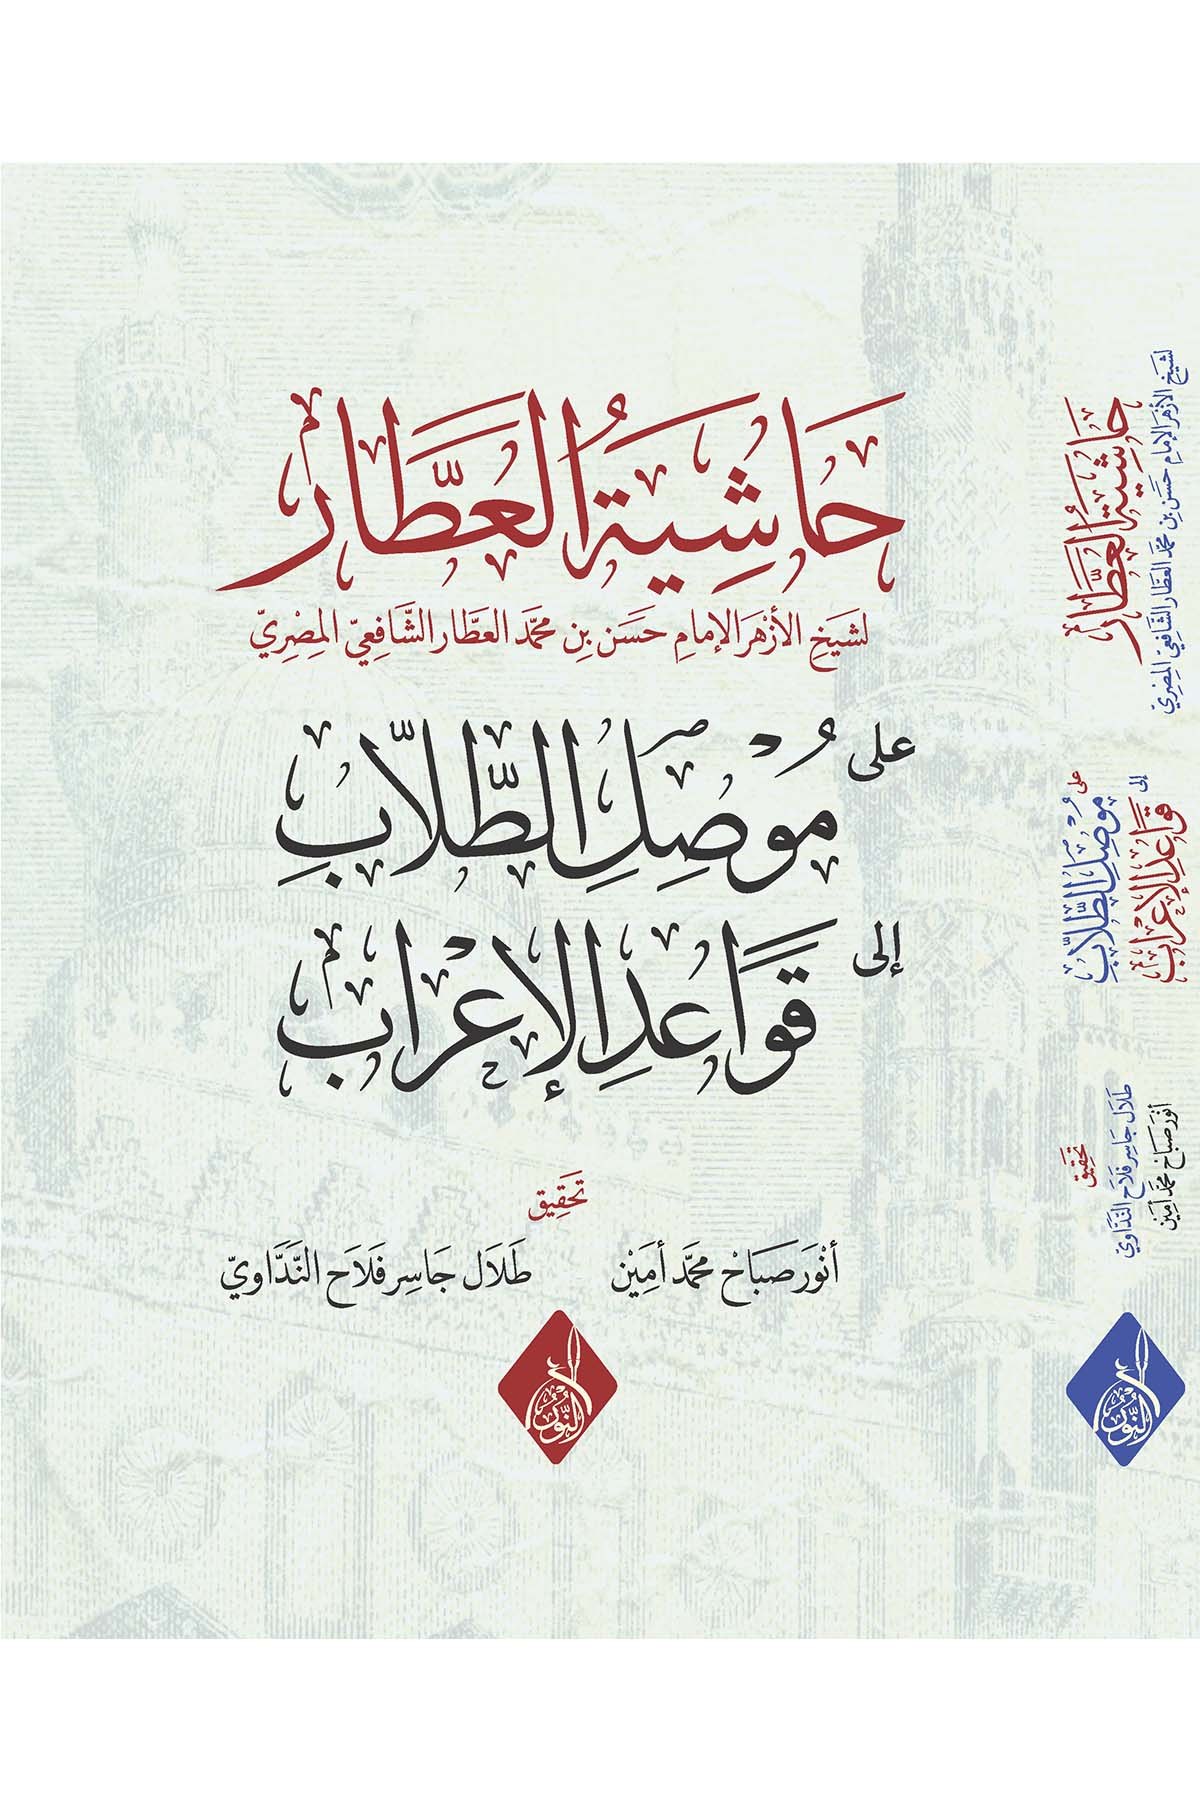 حَاشِيَةُ العَطَّار
لشَيخِ الأزْهَر الإمامِ حَسَن بِن محمَّد العَطَّار الشَّافِعِيّ المِصْرِيّ
على
مُوْصِلِ الطُّلَّابِ
إلى
قَوَاعِدِ الإعْرَاب
تَحَقِيق
أنْوَر صَبَاحْ محمَّد أمَيْن
طَلَال جَاسِر فَلَاح النَّدَّاوِيّ
النُّوْر
حَاشِيَةُ العَطَّار
لشَيخِ الأزْهَر الإمامِ حَسَن بِن محمَّد العَطَّار الشَّافِعِيّ المِصْرِيّ
على
مُوْصِلِ الطُّلَّابِ
إلى
قَوَاعِدِ الإعْرَاب
تَحَقِيق
طَلَال جَاسِر فَلَاح النَّدَّاوِيّ
أنْوَر صَبَاحْ محمَّد أمَيْن
النُّوْر